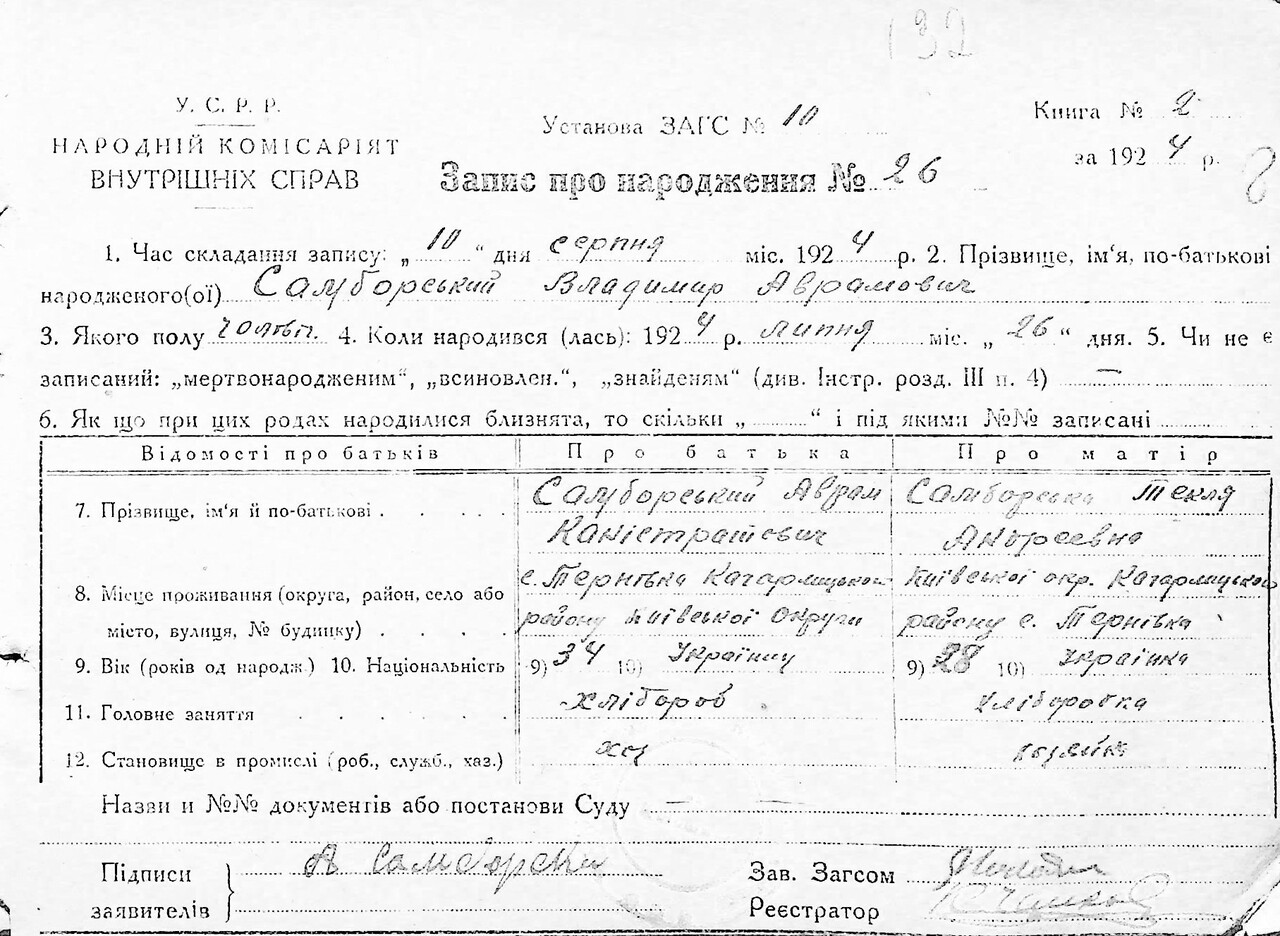 132
У. С. Р. Р.
НАРОДНІЙ КОМІСАРІЯТ
ВНУТРІШНІХ СПРАВ
Установа ЗАГС № 10
Запис про народження № 26
Книга № 2
за 1924 р.
1. Час складання запису: „10“ дня серпня міс. 1924 р. 2. Прізвище, ім‘я, по-батькові
народженого(ої) Самборський Владимир Аврамович
3. Якого полу 4. Коли народився (лась): 1924 р. липня міс. „26“ дня. 5. Чи не є
записаний: „мертвонародженим“, „всиновлен.“, „знайденям“ (див. Інстр. розд. III п. 4) —
6. Як що при цих родах народилися близнята, то скільки „..........“ і під якими №№ записані
Відомості про батьків Про батька Про матір
7. Прізвище, ім‘я й по-батькові . . . . Самборський Аврам Самборська Текля
Каністратович Андреевна
8. Місце проживання (округа, район, село або с. Тернівка Кагарлицького Київської окр. Кагарлицького
місто, вулиця, № будинку) . . . . району Київської Округи району с. Тернівка
9. Вік (років од народж.) 10. Національність 9) 34 10) Українец 9) 28 10) Українка
11. Головне заняття . . . . . хлібороб хліборобка
12. Становище в промислі (роб., служб., хаз.) хоз хозяйка
Назви и №№ документів або постанови Суду — —
Підписи
заявителів
А Самборски
Зав. Загсом
Реєстратор